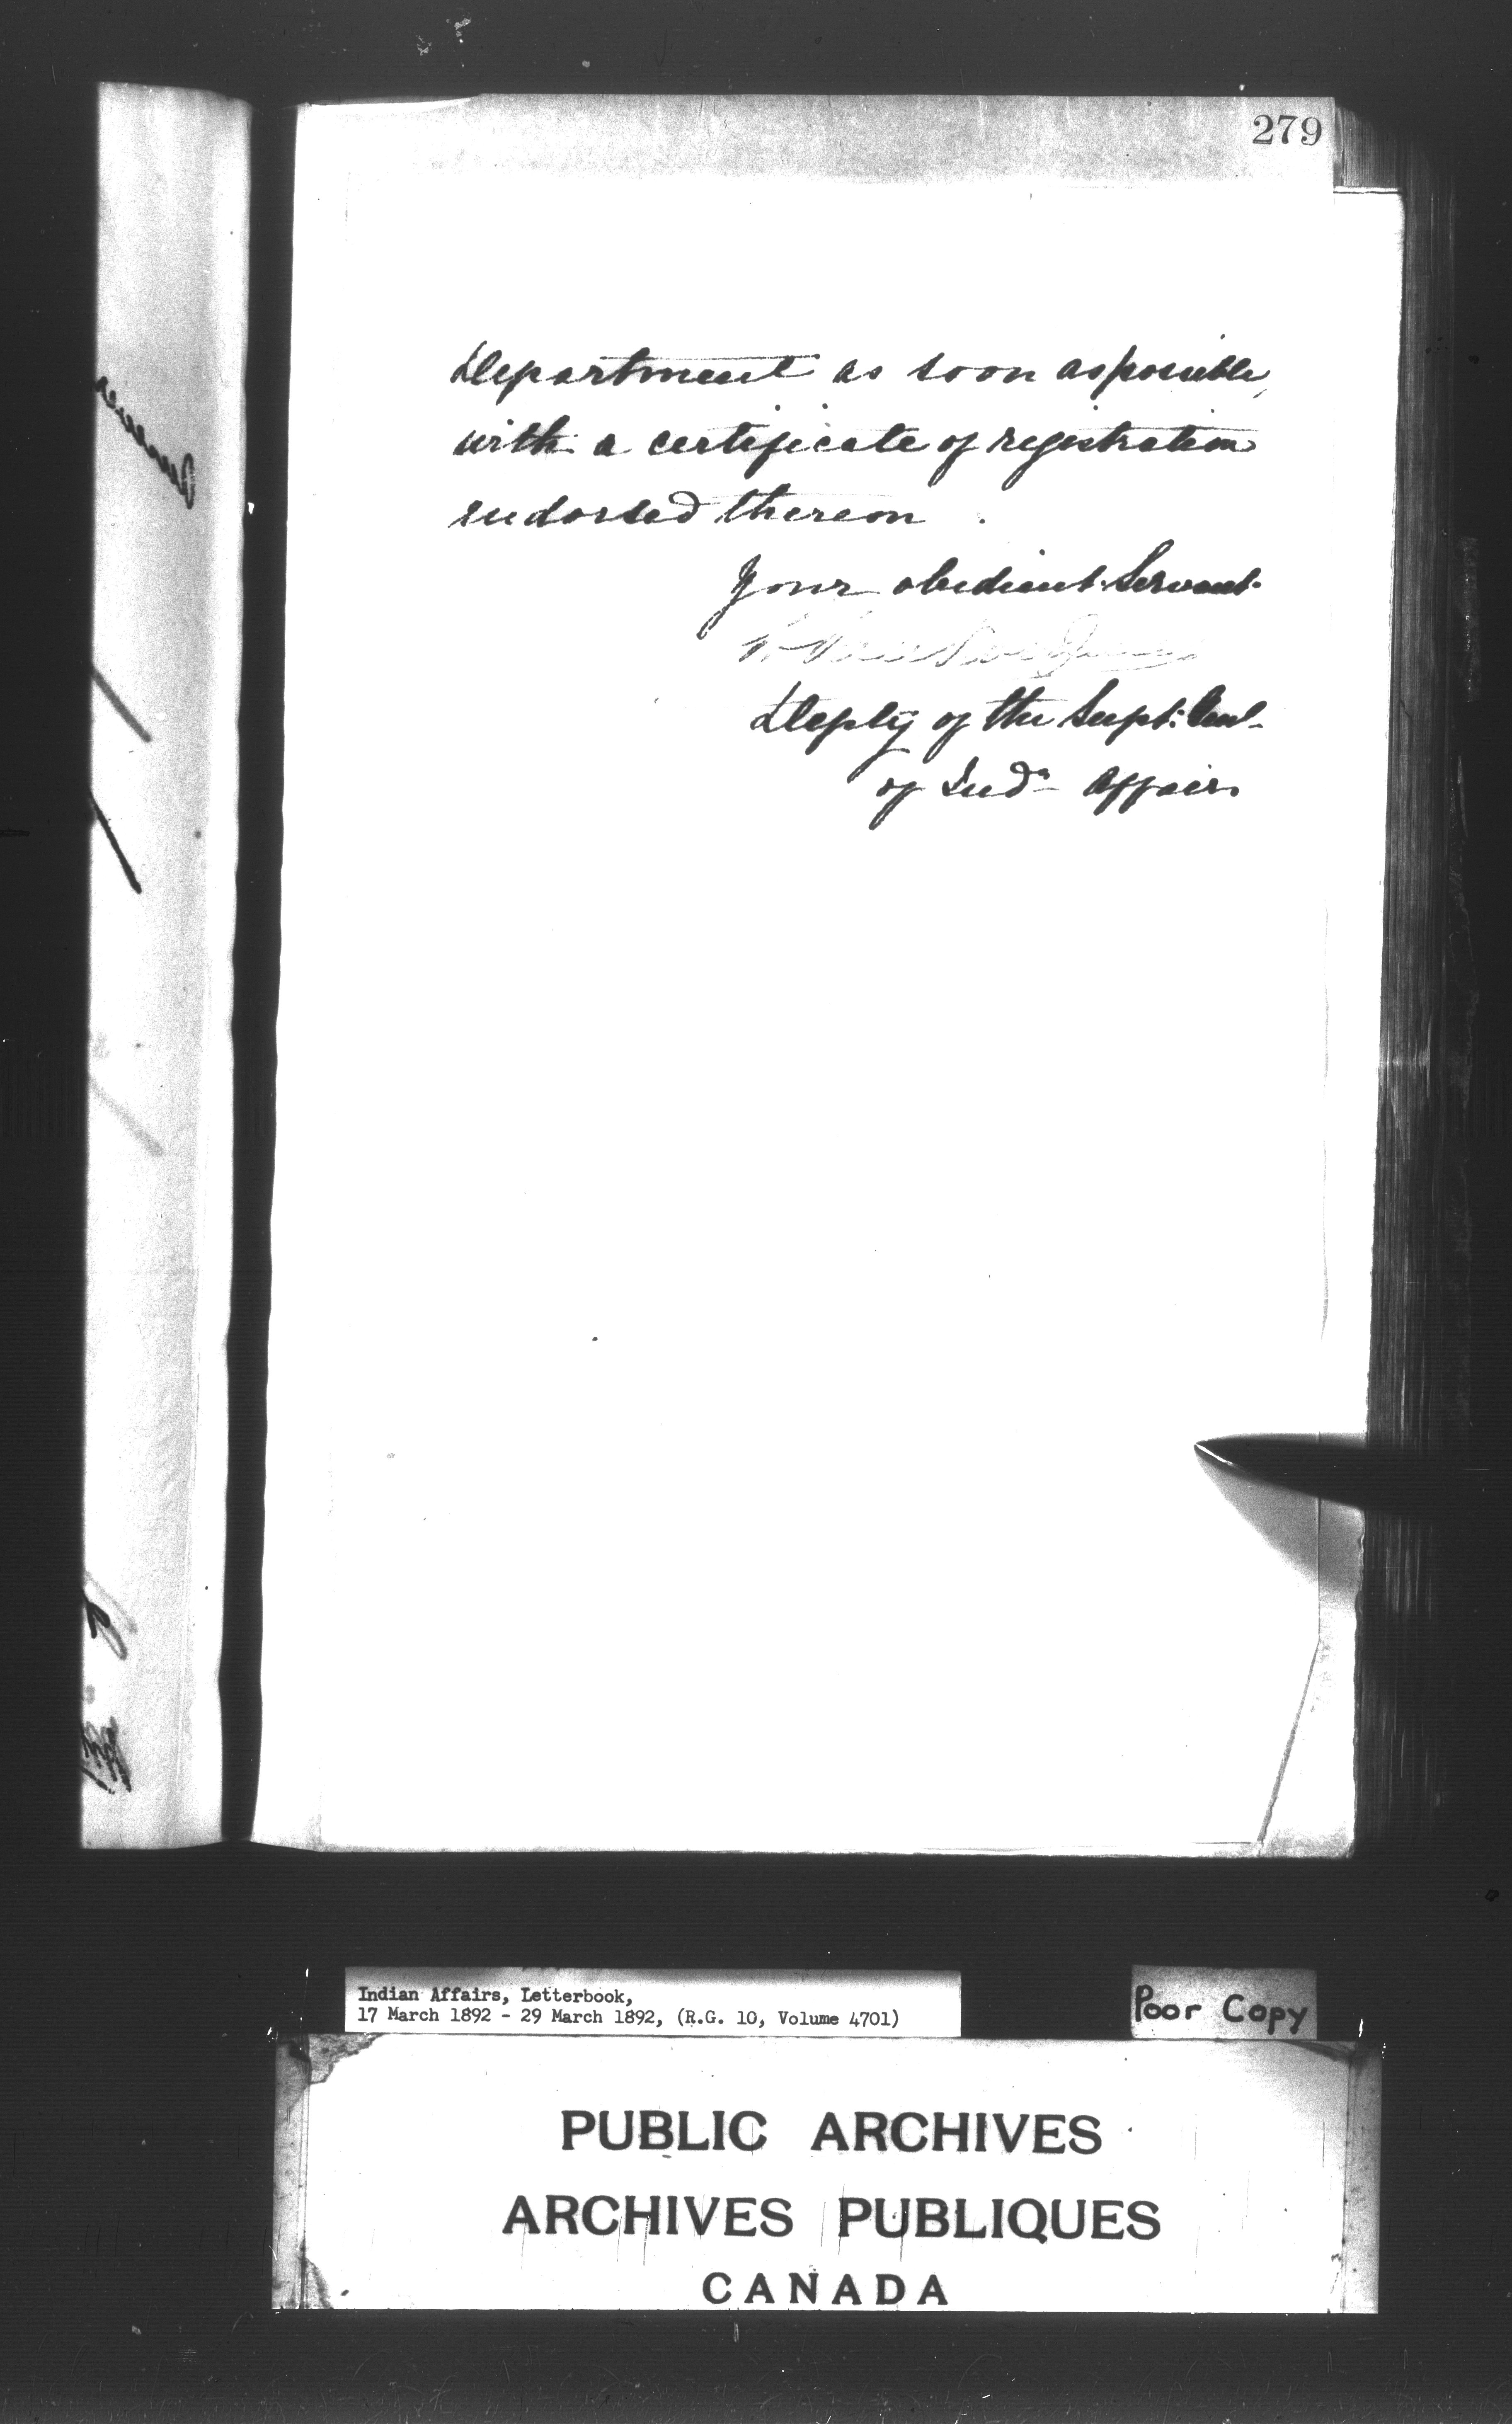 279
Department as soon as possible,
with a certificate of registration
endorsed thereon.
Your obedient Servant
Deputy of the Supt: Genl.
of Indn Affairs
Indian Affairs, Letterbook,
17 March 1892 - 29 March 1892, (R.G. 10, Volume 4701)
Poor Copy
PUBLIC ARCHIVES
ARCHIVES PUBLIQUES
CANADA